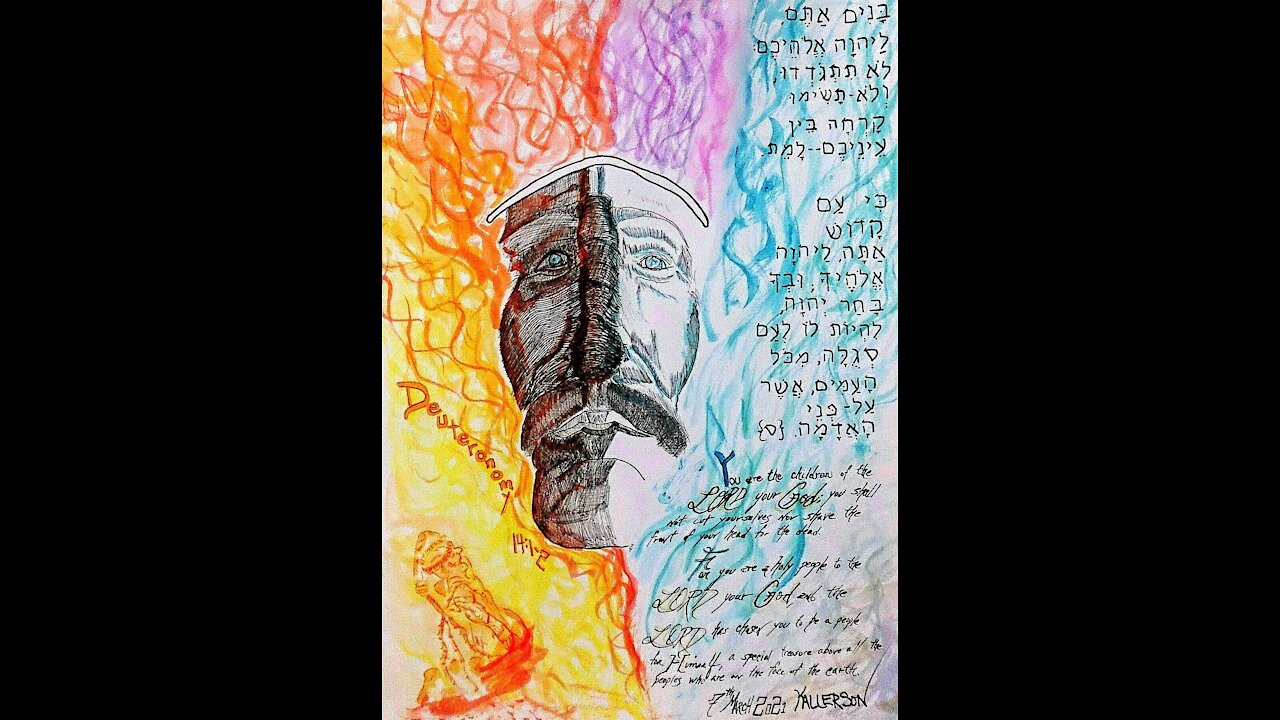 בָּנִים אַתֶּם,
לַיהוָה אֱלֹהֵיכֶם:
לֹא תִתְגֹּדְדוּ,
וְלֹא-תָשִׂימוּ
קָרְחָה בֵּין
עֵינֵיכֶם--לָמֵת.
כִּי עַם
קָדוֹשׁ
אַתָּה, לַיהוָה
אֱלֹהֶיךָ, וּבְךָ
בָּחַר יְהוָה,
לִהְיוֹת לוֹ לְעַם
סְגֻלָּה, מִכֹּל
הָעַמִּים, אֲשֶׁר
עַל-פְּנֵי
הָאֲדָמָה. {ס}
Deuteronomy
14:1-2
You are the children of the
LORD your God; you shall
not cut yourselves nor shave the
front of your head for the dead.
For you are a holy people to the
LORD your God and the
LORD has chosen you to be a people
for Himself, a special treasure above all the
peoples who are on the face of the earth.
7th March 2021 YALLERSON